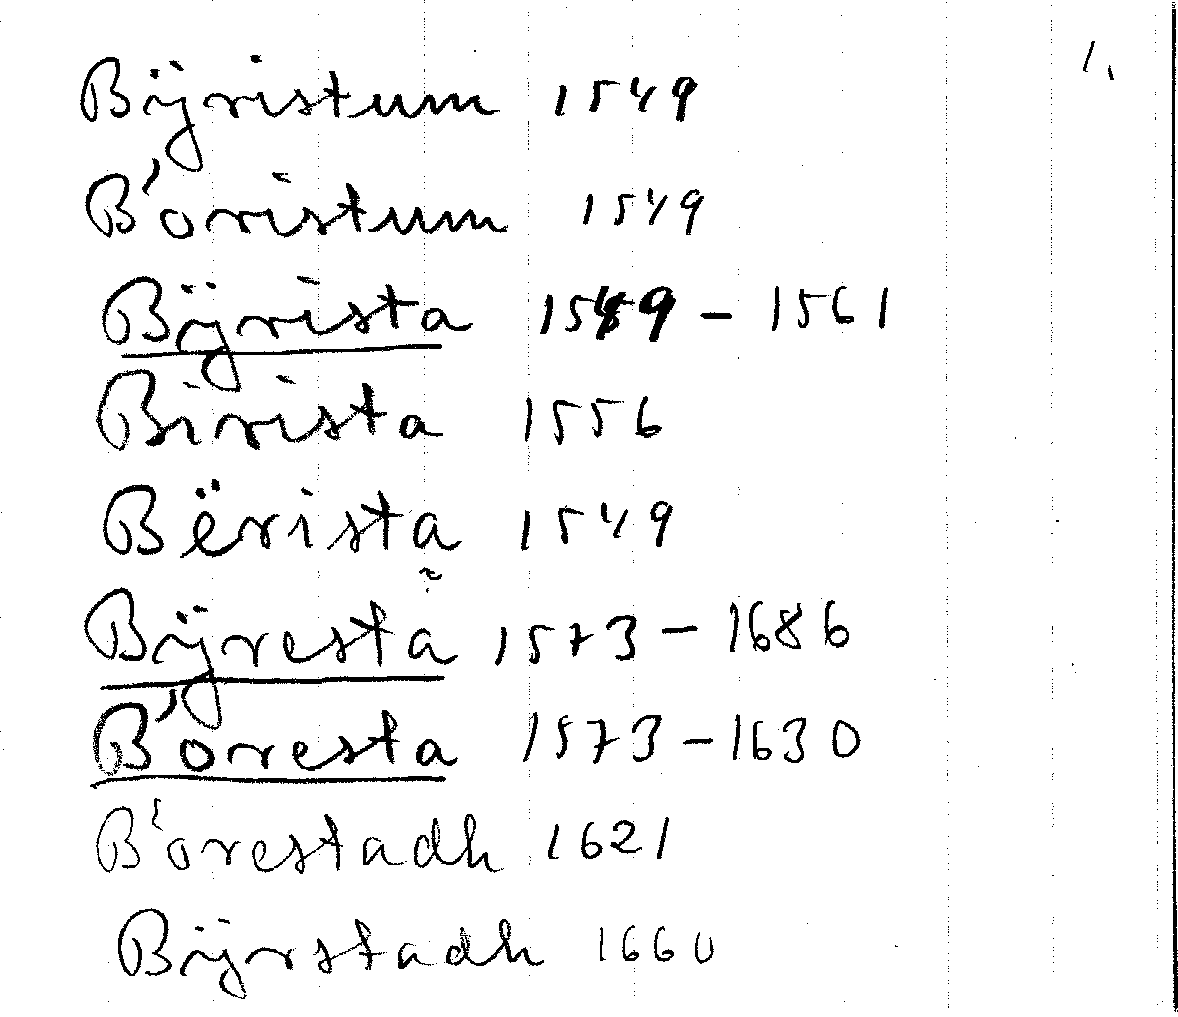 1.
Bijristum 1549
B'oristum 1549
Bijrista 1549 - 1561
Birista 1556
Bërista 1549
Bijresta 1573 - 1686
B'oresta 1573 - 1630
B'orestadh 1621
Bijrstadh 1660